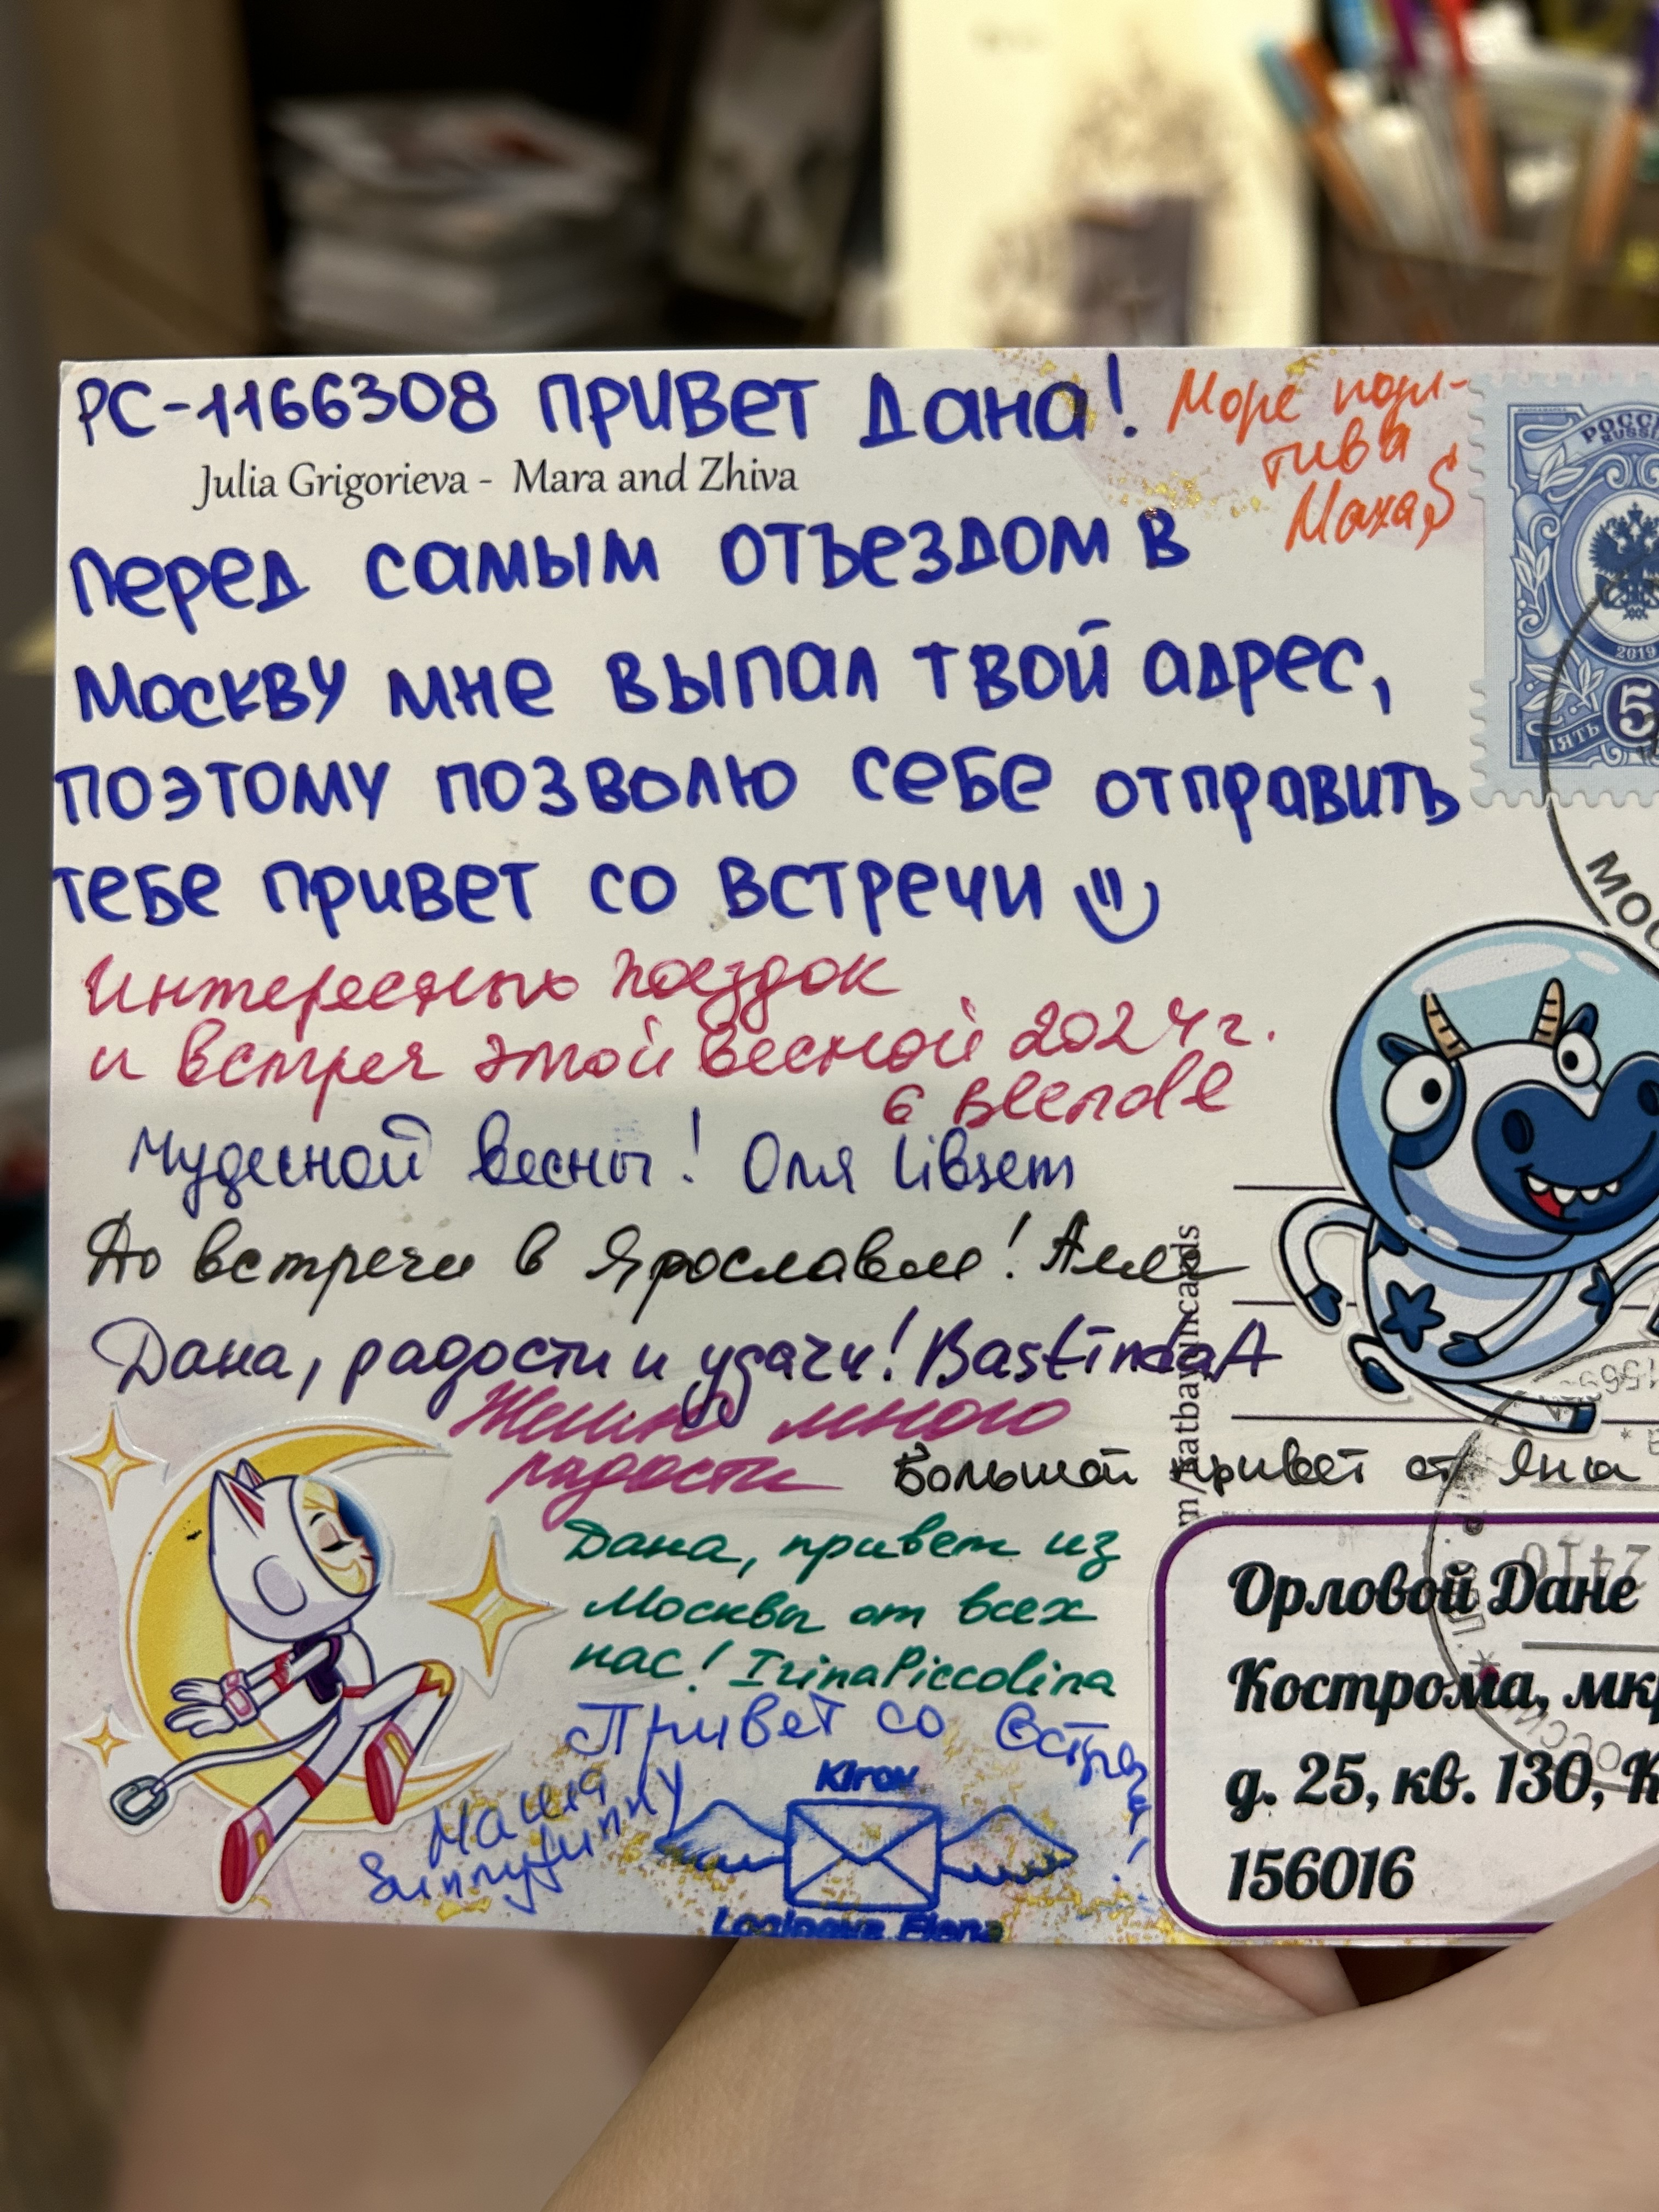 PC-1166308 ПРИВЕТ Дана!
Море пози-
тива
Маха
Julia Grigorieva - Mara and Zhiva
Перед самым отъездом в
Москву мне выпал твой адрес,
поэтому позволю себе отправить
тебе привет со встречи
Интересных поездок
и встреч этой весной 2024 г.
Чудесной весны! Оля libsem
До встречи в Ярославле! Алла
Дана, радости и удачи! BastindaA
Желаю много
радости
Большой привет от Яны
Дана, привет из
Москвы от всех
нас! IrinaPiccolina
Привет со встречи!
Маша
Sunnyfunny
Kirov
Loginova Elena
РОСС
RUSSI
2019
5
ПЯТЬ
МОС
Орловой Дане
Кострома, мкр
д. 25, кв. 130, К
156016